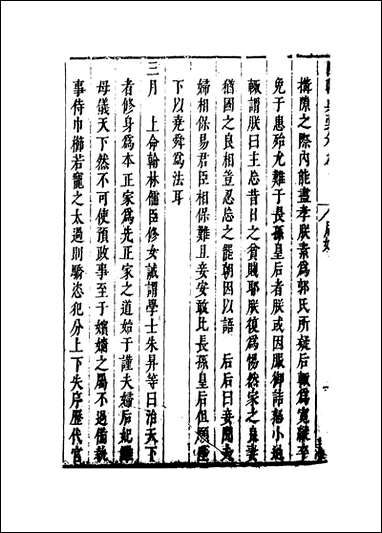 搆隙之際內能盡孝朕素為郭氏所疑后輒為寬釋至
免于患殆尤難于長孫皇后者朕或因服御詰怒小過
輒謂朕曰主忘昔日之貧賤耶朕復為惕然家之良妻
猶國之良相豈忍忘之罷朝因以語 后后曰妾聞夫
婦相保易君臣相保難且妾安敢比長孫皇后但願陛
下以堯舜為法耳
三月 上命翰林儒臣修女誡謂學士朱昇等曰治天下
者修身為本正家為先正家之道始于謹夫婦后妃雖
母儀天下然不可使預政事至于嬪嬙之屬不過備執
事侍巾櫛若寵之太過則驕恣犯分上下失序歷代宮